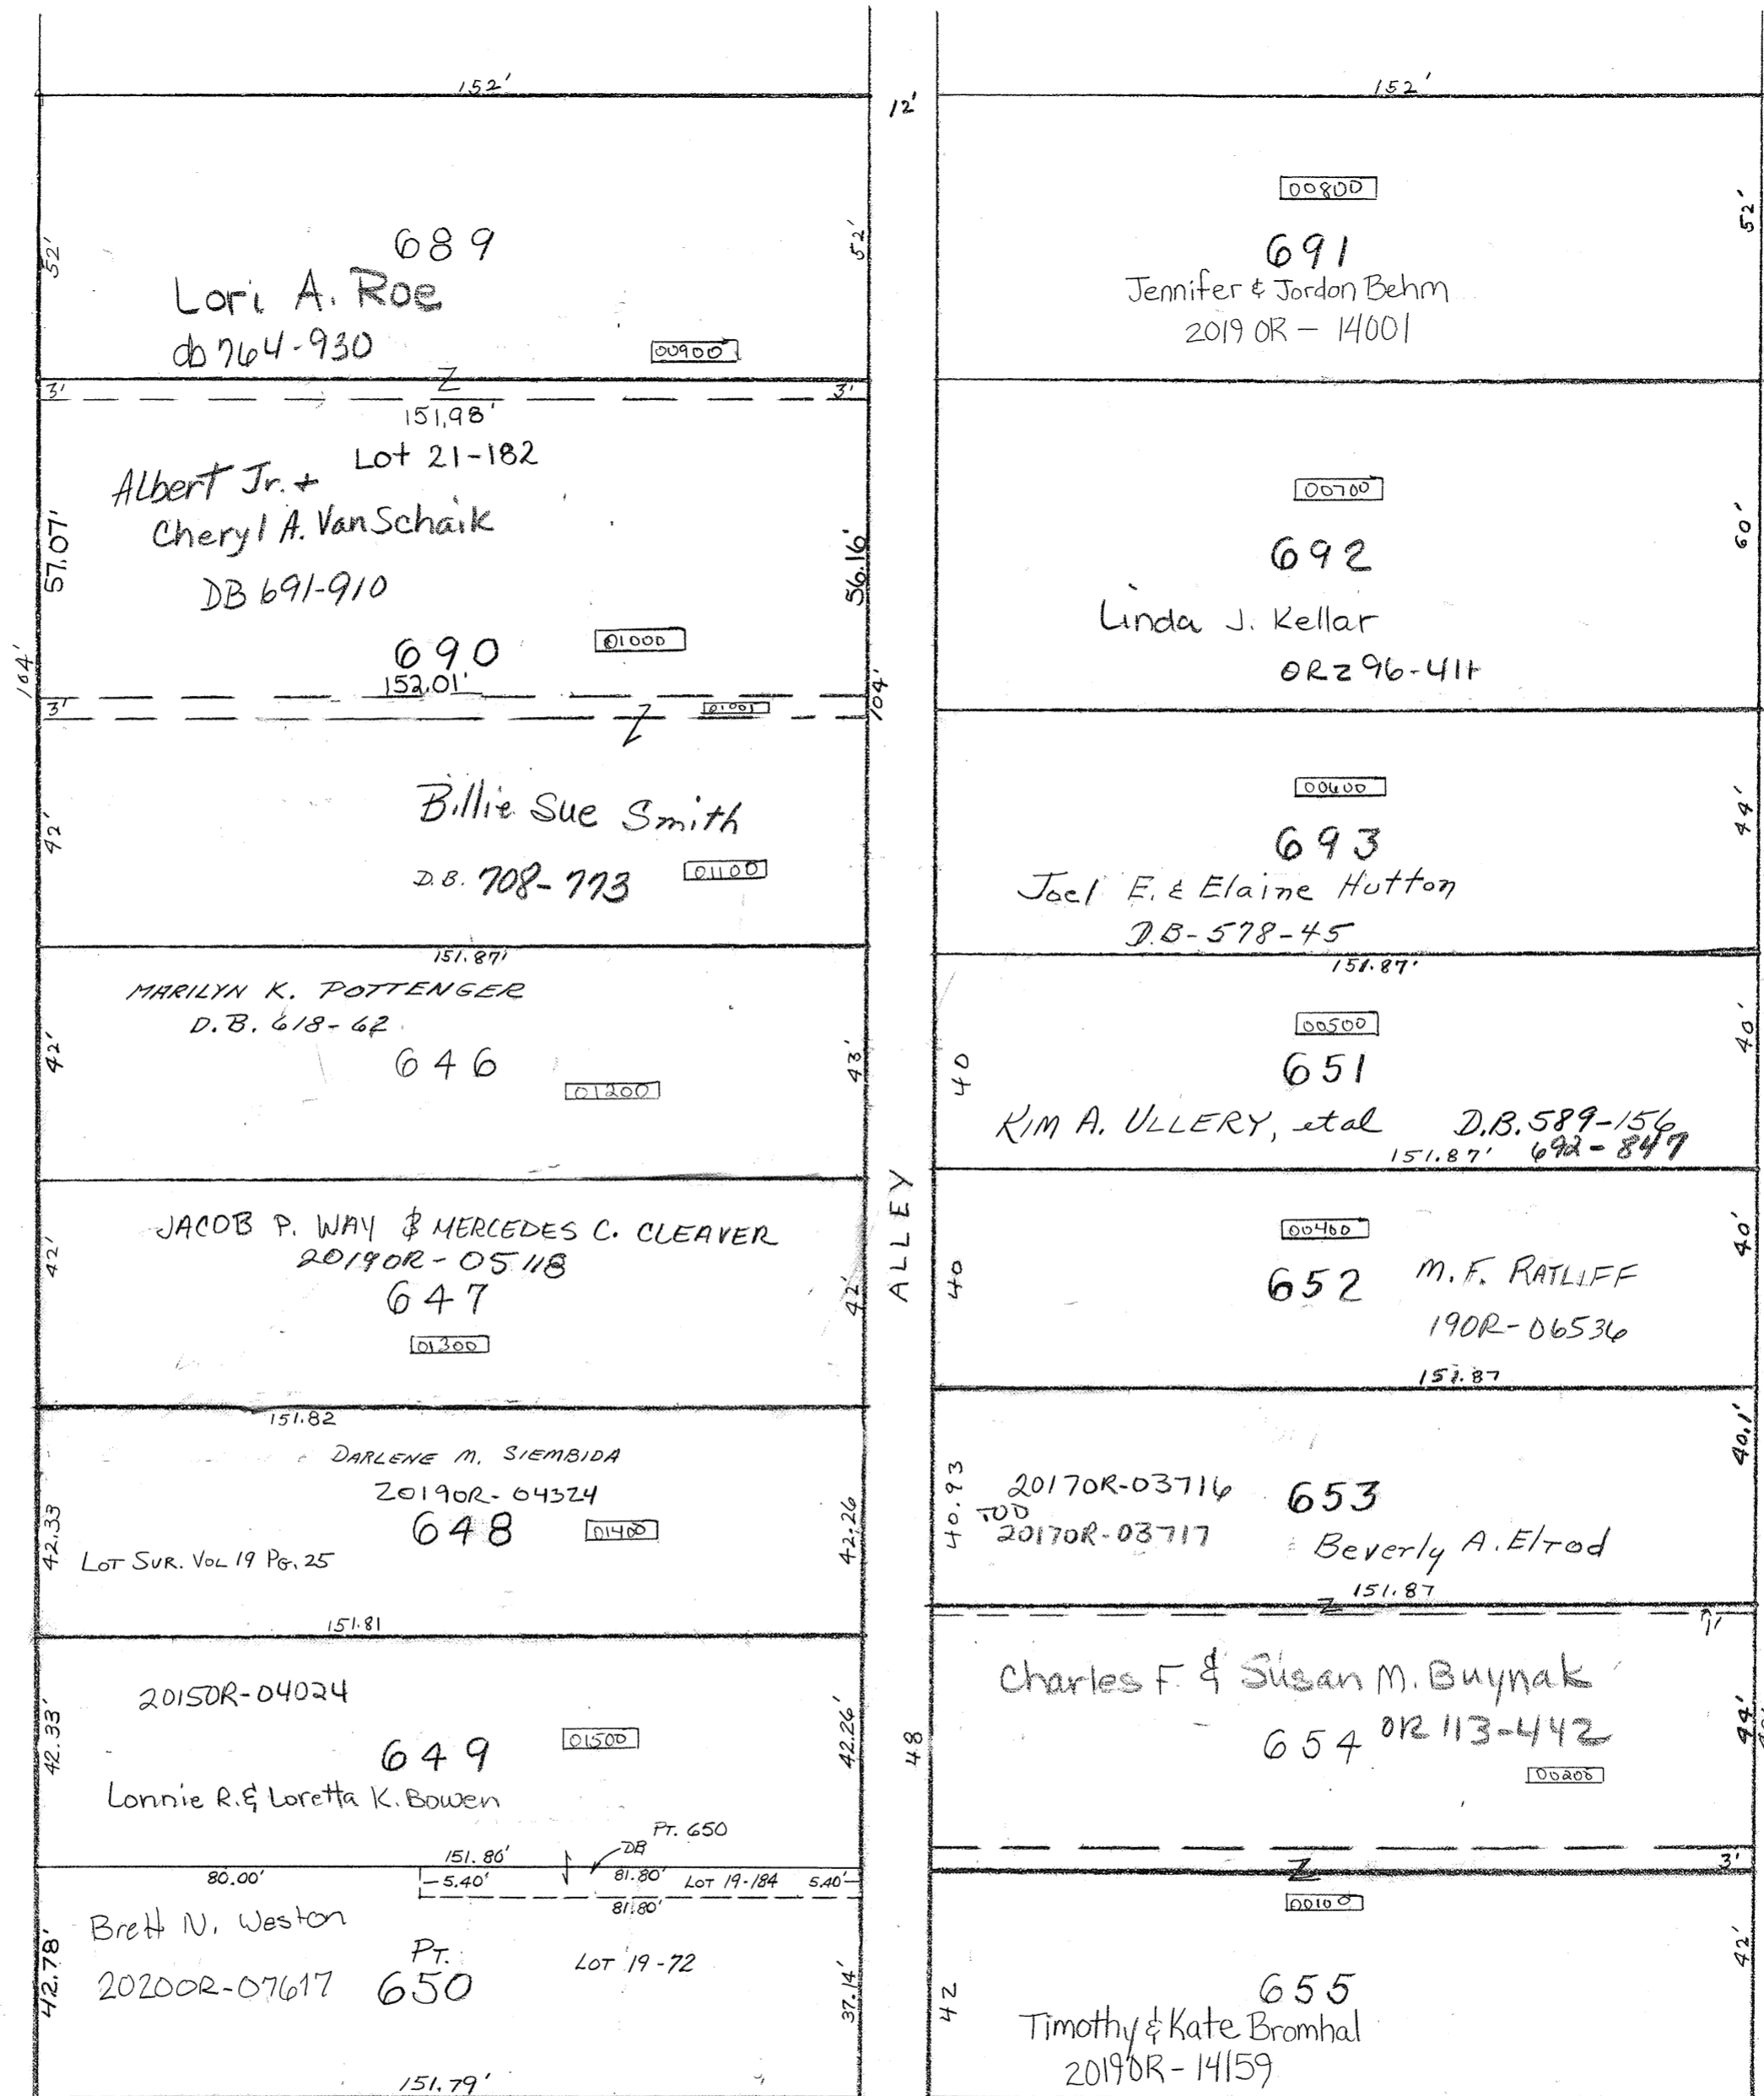 152'
689
52'
52'
Lori A. Roe
db 764-930
00900
3'
Z
3'
151.98'
Lot 21-182
Albert Jr. +
Cheryl A. VanSchaik
DB 691-910
57.07'
56.16'
690
01000
152.01'
104'
104'
3'
01001
Z
Billie Sue Smith
D.B. 708-773
01100
42'
151.87'
MARILYN K. POTTENGER
D.B. 618-62
646
01200
42'
43'
JACOB P. WAY & MERCEDES C. CLEAVER
2019OR-05118
647
01300
42'
42'
151.82
DARLENE M. SIEMBIDA
2019OR-04324
648
01400
LOT SUR. VOL 19 PG. 25
42.33
42.26
151.81
2015OR-04024
649
01500
Lonnie R. & Loretta K. Bowen
42.33'
42.26'
PT. 650
DB
151.80'
80.00'
5.40'
81.80'
LOT 19-184
5.40'
81.80'
Brett N. Weston
2020OR-07617
PT.
650
LOT 19-72
42.78'
37.14'
151.79'
12'
ALLEY
152'
00800
691
Jennifer & Jordon Behm
2019 OR - 14001
52'
00700
692
Linda J. Kellar
60'
00600
693
Joel E. & Elaine Hutton
D.B-578-45
44'
151.87'
00500
651
40
40'
KIM A. ULLERY, etal
D.B. 589-156
692-847
151.87'
00400
652
M.F. RATLIFF
19OR-06536
40
40'
151.87
2017OR-03716
TOD
2017OR-03717
653
Beverly A. Elrod
40.93
40.1'
151.87
Z
1'
Charles F. & Susan M. Buynak
654
OR 113-442
00200
48
44'
3'
Z
00100
655
Timothy & Kate Bromhal
2019OR-14159
42
42'